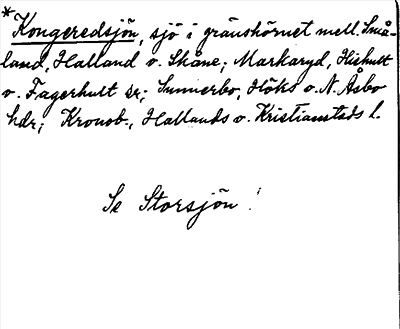 *Kongeredsjön, sjö i gränshörnet mell. Små-
land, Halland o. Skåne; Markaryd, Hishult
o. Fagerhult sr; Sunnerbo, Höks o. N. Åsbo
hdr; Kronob., Hallands o. Kristianstads l.
Se Storsjön!